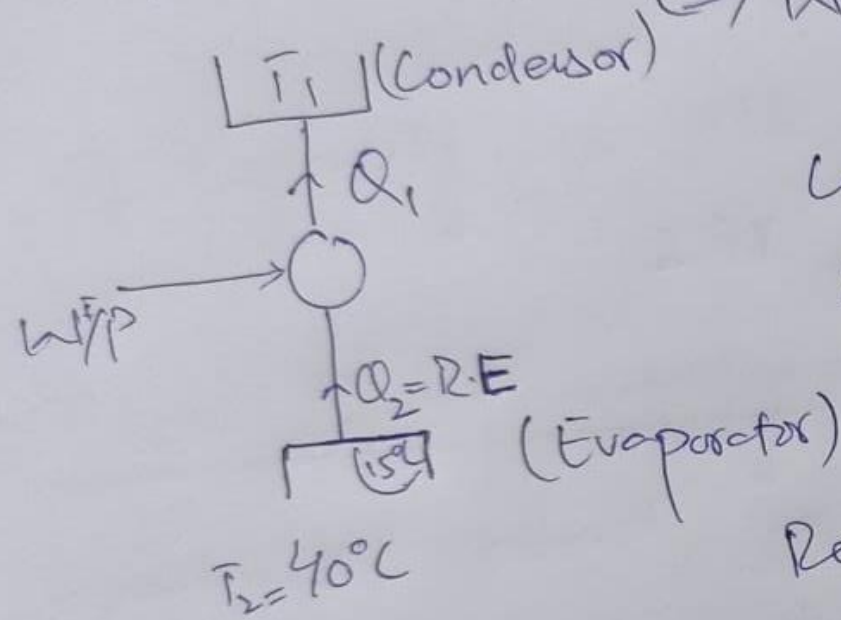 T₁ (Condensor)
Q₁
W I/P
Q₂ = R.E
(Evaporator)
T₂ = 40°C
Re